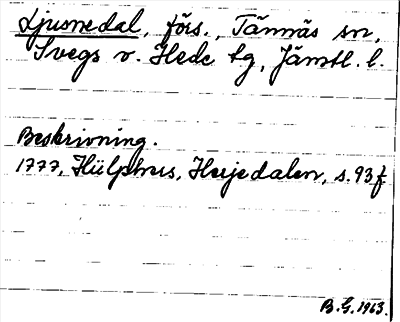 Ljusnedal, förs., Tännäs sn,
Svegs o. Hede tg, Jämtl. l.
Beskrivning.
1777, Hülphers, Herjedalen, s. 93 f
B.G. 1963.